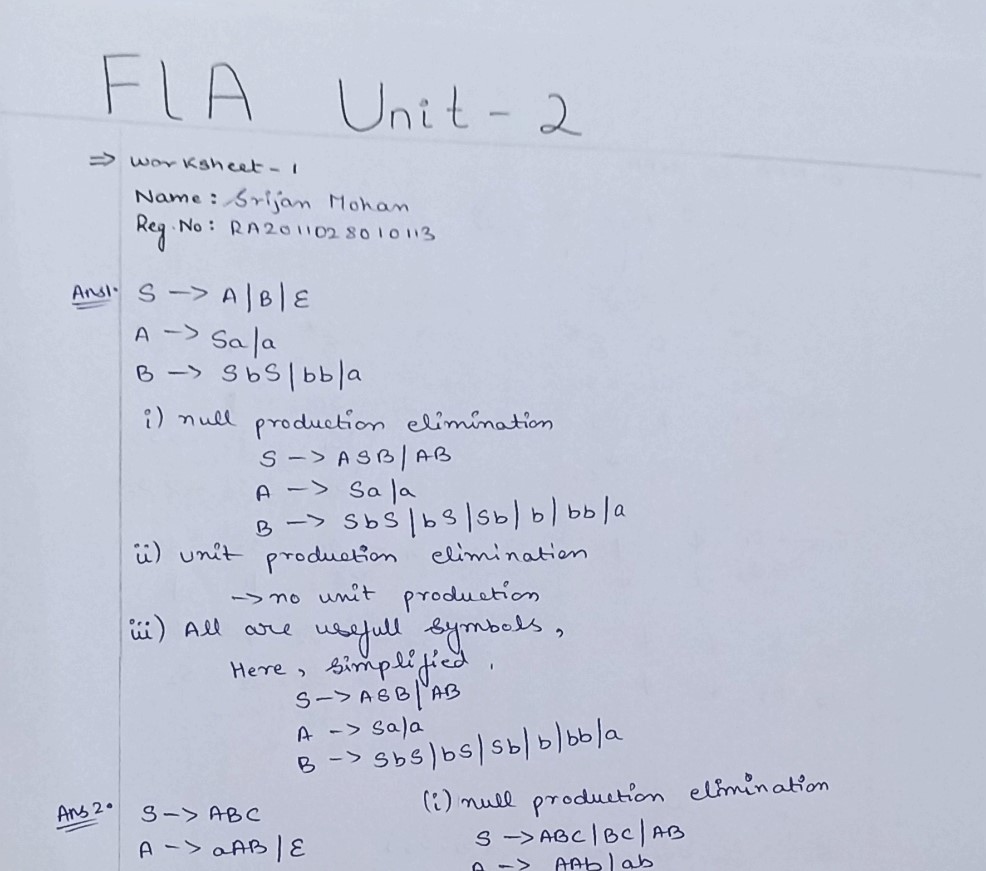 FLA Unit - 2
=> Worksheet - 1
Name: Srijan Mohan
Reg. No: RA2011028010113
Ans1. S -> A|B|ε
A -> Sa|a
B -> SbS|bb|a
i) null production elimination
S -> ASB|AB
A -> Sa|a
B -> SbS|bS|Sb|b|bb|a
ii) unit production elimination
-> no unit production
iii) All are usefull symbols,
Here, simplified.
S -> ASB|AB
A -> Sa|a
B -> SbS|bS|Sb|b|bb|a
Ans 2. S -> ABC
A -> aAB|ε
(i) null production elimination
S -> ABC|BC|AB
A -> AAb|ab